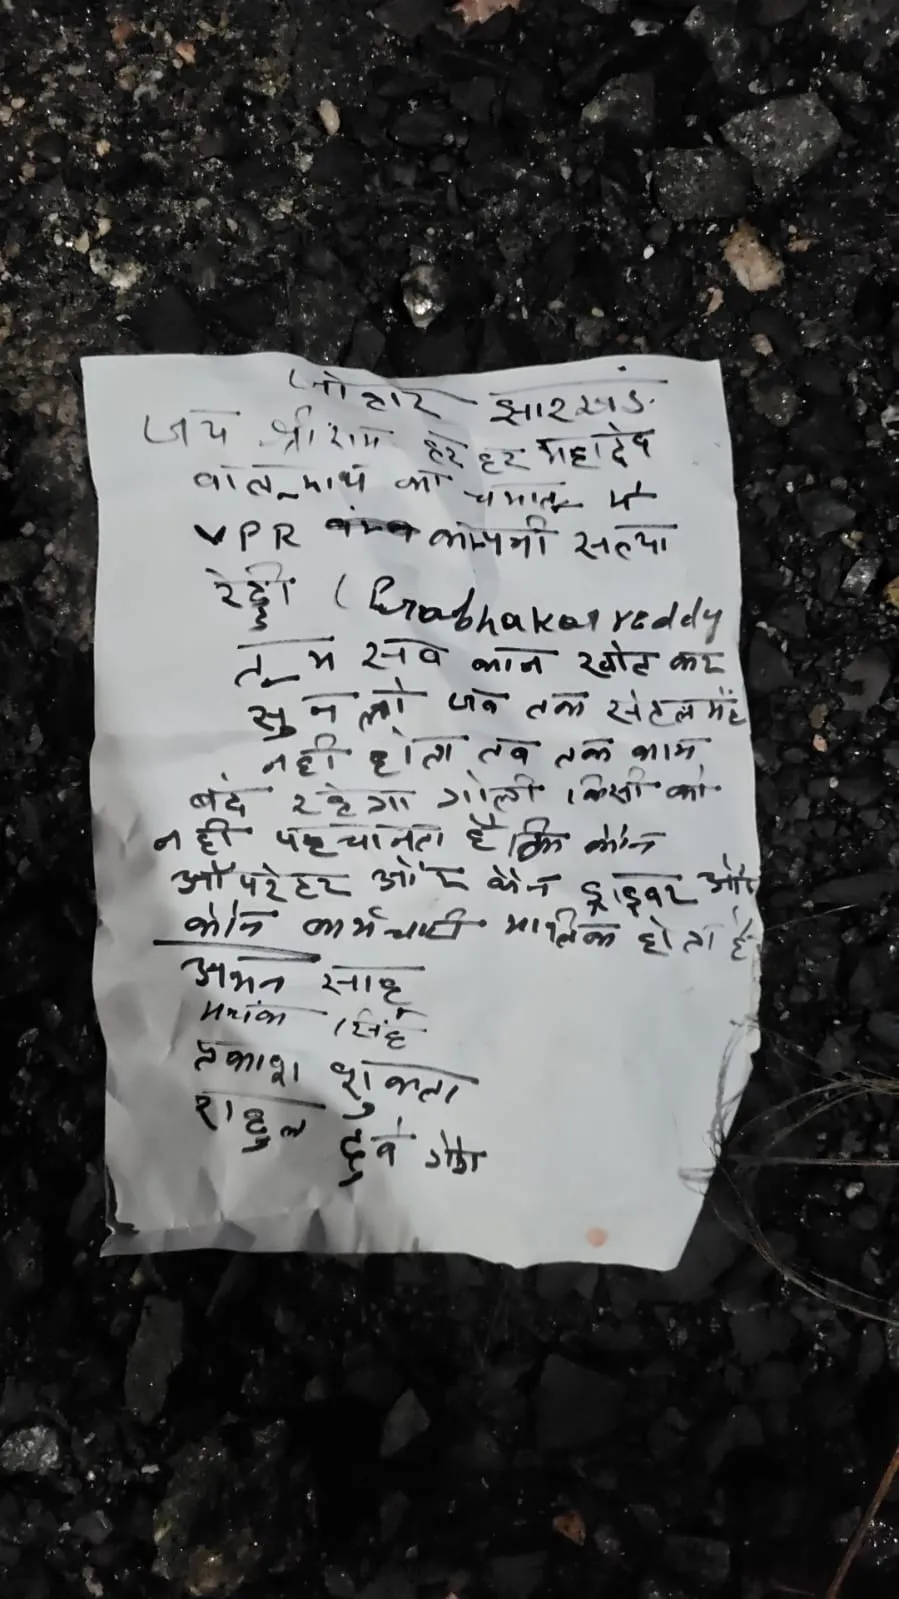 जोहार झारखंड
जय श्री राम हर हर महादेव
को में
VPR कम्पनी सत्या
रेड्डी (Prabhakar reddy
तुम सब कान खोल कर
सुन लो जब तक सेटलमेंट
नही होता तब तक काम
बंद रहेगा गोली किसी को
नही पहचानता है कि कौन
ऑपरेटर और कौन ड्राइवर और
कौन कर्मचारी मालिक होता है
अमन साहू
मयंक सिंह
प्रकाश शुक्ला
राहुल दुबे गैंग